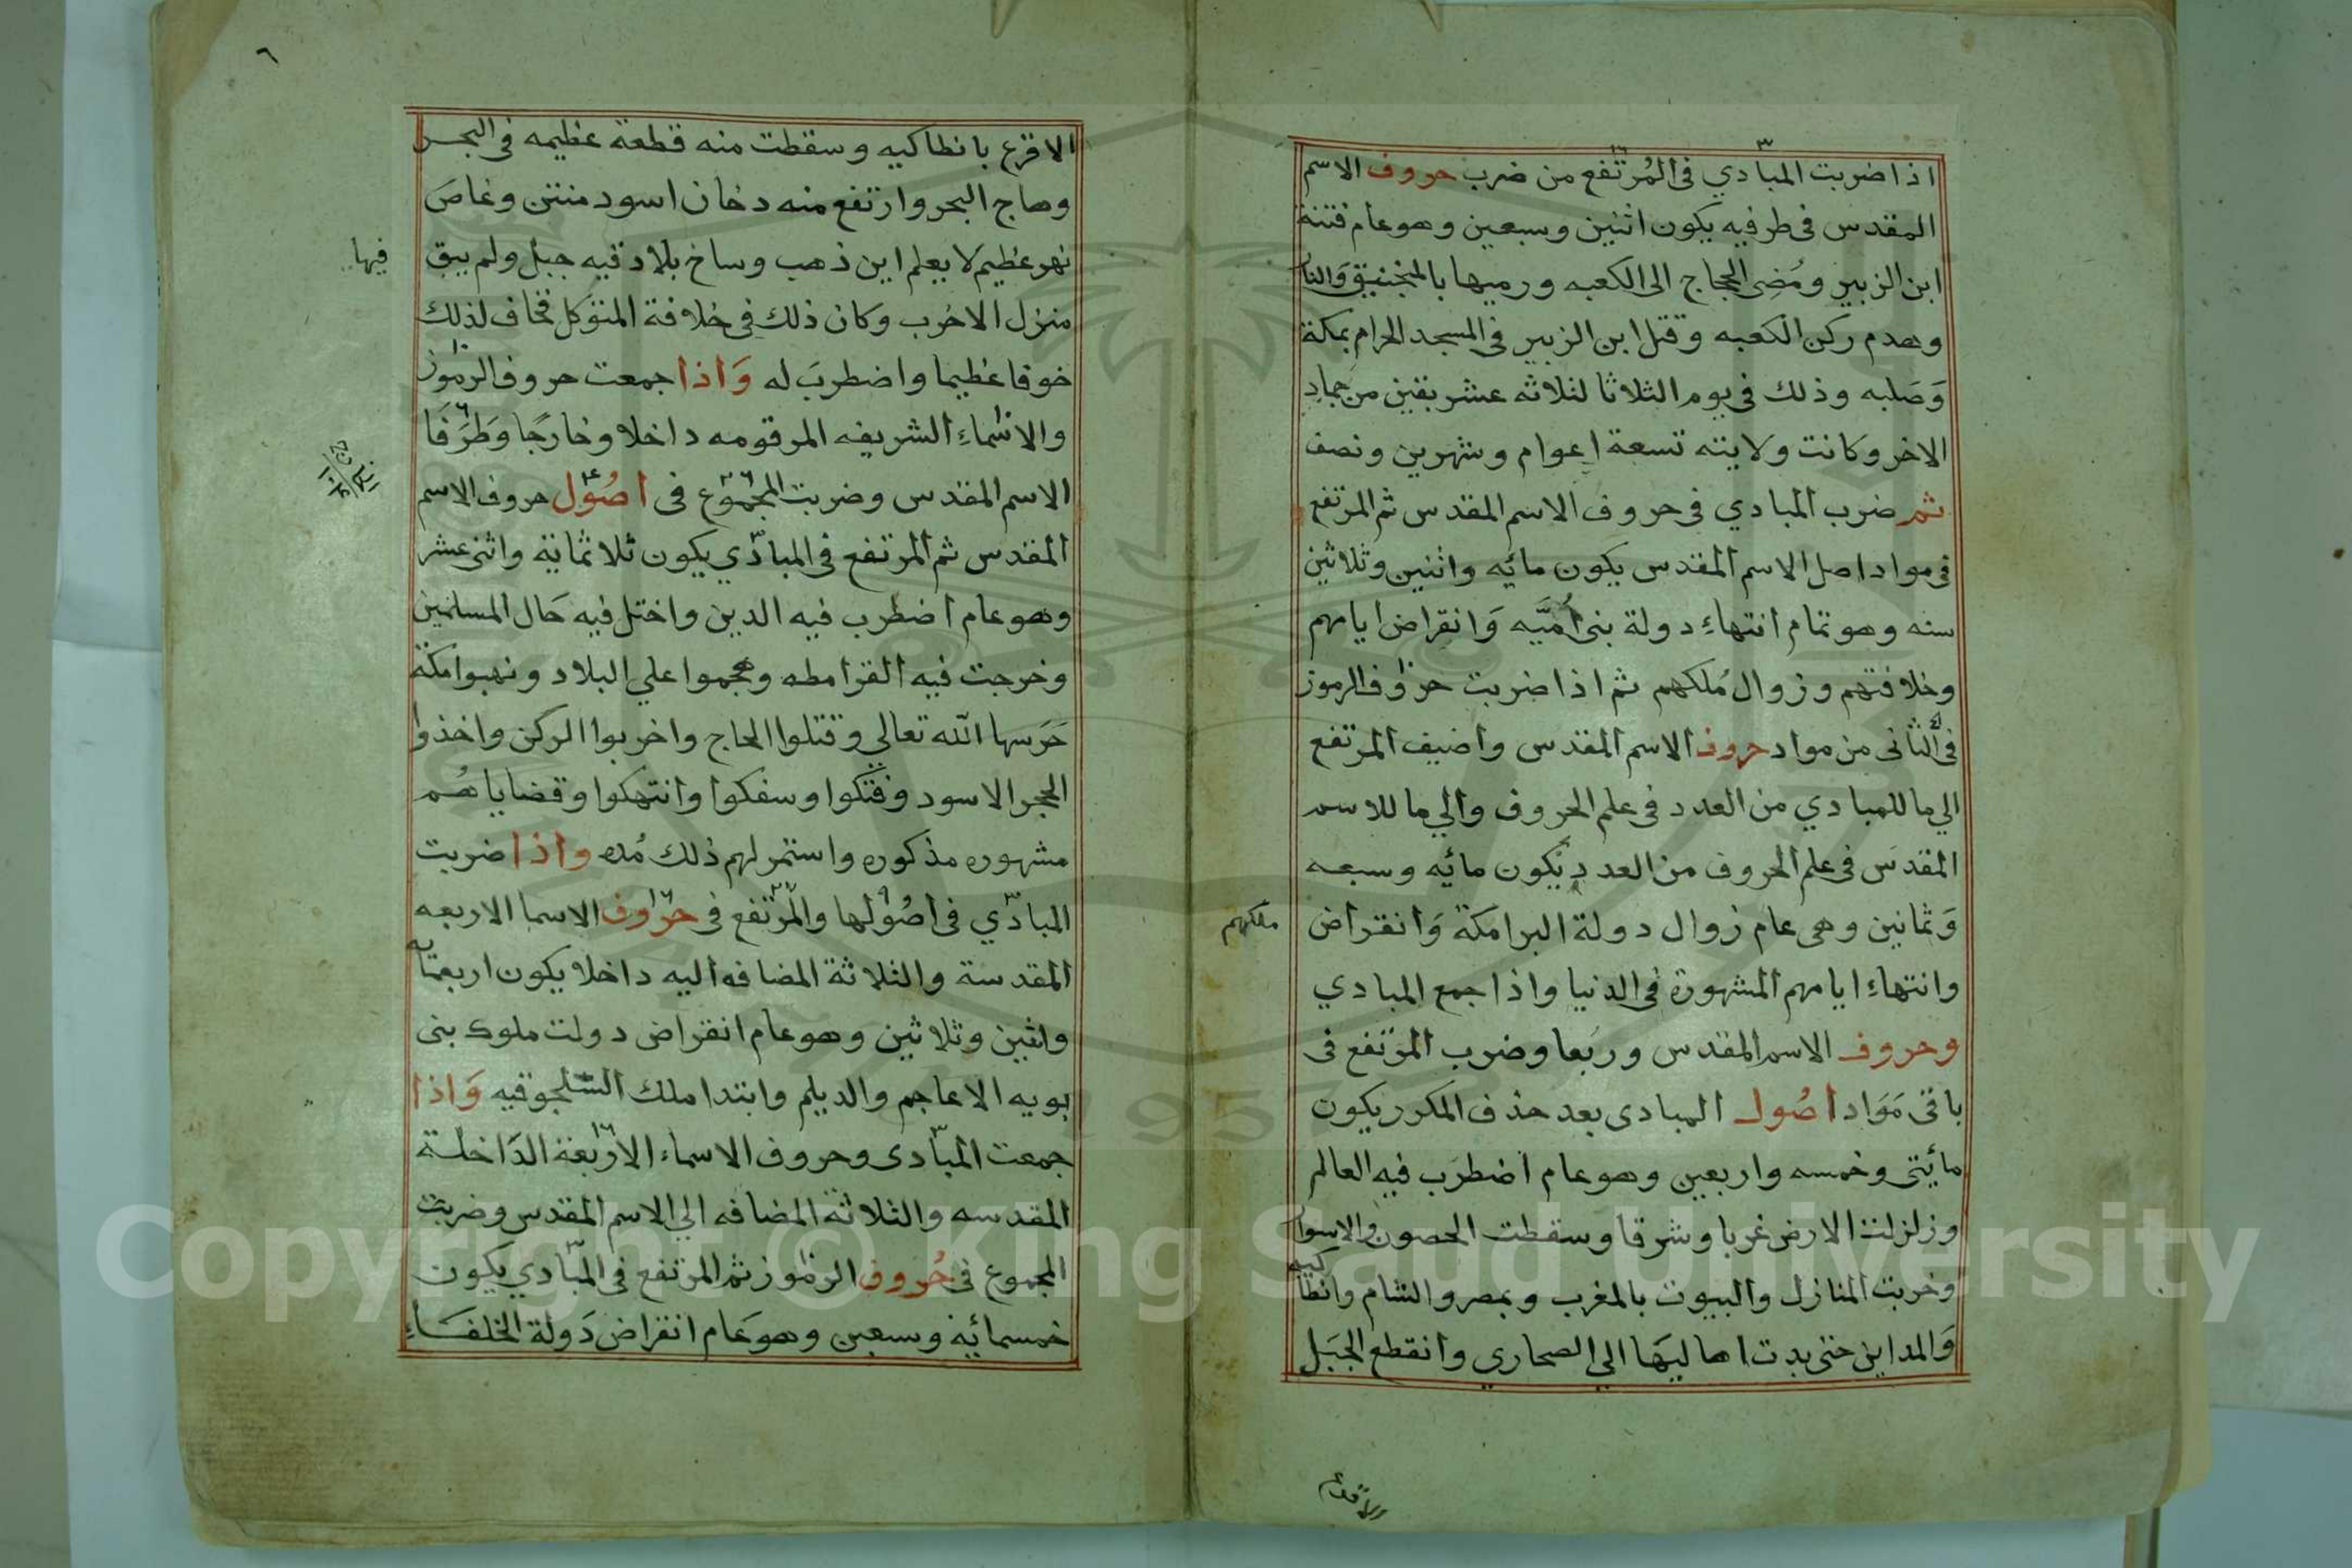 اذا ضربت المبادي فى المُرتفع من ضرب حروف الاسم
المقدس فى طرفيه يكون اثنين وسبعين وهو عام فتنة
ابن الزبير ومُضِى الحجاج الى الكعبه ورميها بالمنجنيق وَالنار
وهدم ركن الكعبه وقتل ابن الزبير فى المسجد الحرام بمكة
وَصَلبه وذلك فى يوم الثلاثا لثلاثه عشر بقين من جماد
الاخر وكانت ولايته تسعة اعوام وشهرين ونصف
ثم ضرب المبادي فى حروف الاسم المقدس ثم المرتفع
فى مواد اصل الاسم المقدس يكون مائيه واثنين وثلاثين
سنه وهو تمام انتهاءِ دولة بنى اُمَيَّه وَانقراض ايامهم
وخلافتهم وزوال مُلكهم ثم اذا ضربت حروف الرموز
فى الثانى من مواد حروف الاسم المقدس واضيف المرتفع
الي ما للمبادي من العدد فى علم الحروف والي ما للاسم
المقدس فى علم الحروف من العدد يكون مائيه وسبعه
وَثمانين وهى عام زوال دولة البرامكة وَانقراض
ملكهم
وانتهاءِ ايامهم المشهورة فى الدنيا واذا جمع المبادي
وحروف الاسم المقدس وربعا وضرب المرتفع فى
باقى مَوَاد اصُول المبادى بعد حذف المكرر يكون
مائيتى وخمسه واربعين وهو عام اضطرَب فيه العالم
وزلزلت الارض غربا وشرقا وسقطت الحصون والاسوار
وخربت المنازل والبيوت بالمغرب وبمصر والشام وانطاكيه
وَالمداين حتى بدت اهاليَها الى الصحارى وانقطع الجَبَل
الاقرع
٦
الاقرع بانطاكيه وسقطت منه قطعة عظيمه فى البحر
وهاج البحر وارتفع منه دخان اسود منتن وغاصَ
نهر عظيم لا يعلم اين ذهب وساخ بلاد قيه جبل ولم يبق
فيها
منزل الاخرب وكان ذلك فى خلافة المتوكل فخاف لذلك
خوفا عظيما واضطربَ له وَاذا جمعت حروف الرموز
والاسْماءِ الشريفه المرقومه داخلا وخارجًا وَطَرَفَا
الاسم المقدس وضربت المجموع فى اصُول حروف الاسم
المقدس ثم المرتفع فى المبادي يكون ثلاثماية واثنى عشر
وهو عام اضطرب فيه الدين واختل فيه حَال المسلمين
وخرجت فيه القرامطه وهجموا علي البلاد ونهبوا مكة
حَرَسها الله تعالي وقتلوا الحاج واخربوا الركن واخذوا
الحجر الاسود وفتكوا وسفكوا وانتهكوا وقضاياهُم
مشهوره مذكوره واستمر لهم ذلك مُده واذا ضربت
المبادي فى اصُولها والمرتفع فى حروف الاسما الاربعه
المقدسة والثلاثة المضافه اليه داخلا يكون اربعمائة
واثنين وثلاثين وهو عام انقراض دولت ملوك بنى
بويه الاعاجم والديلم وابتدا ملك السلجوقيه وَاذا
جمعت المبادى وحروف الاسماء الاربعة الدَاخلة
المقدسه والثلاثة المضافه الي الاسم المقدس وضربت
المجموع فى حُروف الرموز ثم المرتفع فى المبادي يكون
خمسمائية وسبعين وهو عَام انقراض دَولة الخلفَاءِ
Copyright © King Saud University
1957